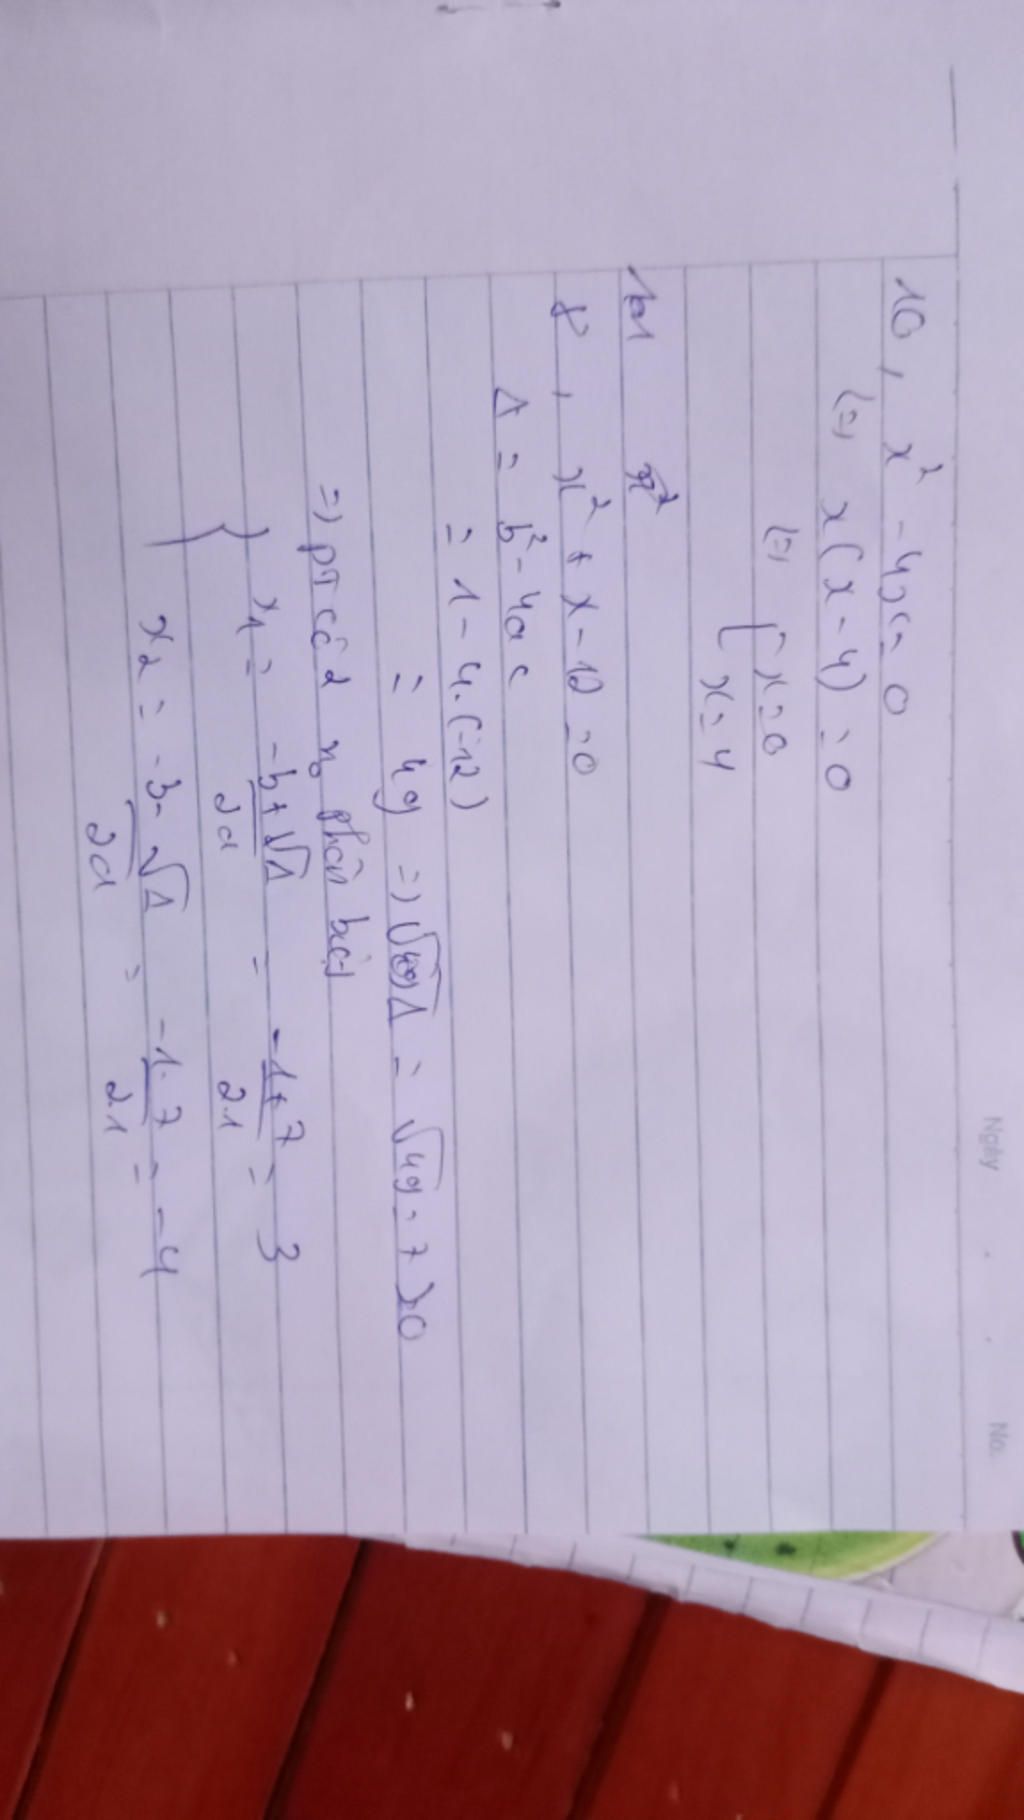 Ngày . . No.
10, x² - 4x = 0
(=) x(x - 4) = 0
(=) [ x = 0
x = 4
8, x² + x - 12 = 0
Δ = b² - 4ac
= 1 - 4.(-12)
= 49 => √Δ = √49 = 7 > 0
=> PT có 2 no phân biệt
{ x1 = -b + √Δ / 2a = -1 + 7 / 2.1 = 3
x2 = -b - √Δ / 2a = -1 - 7 / 2.1 = -4